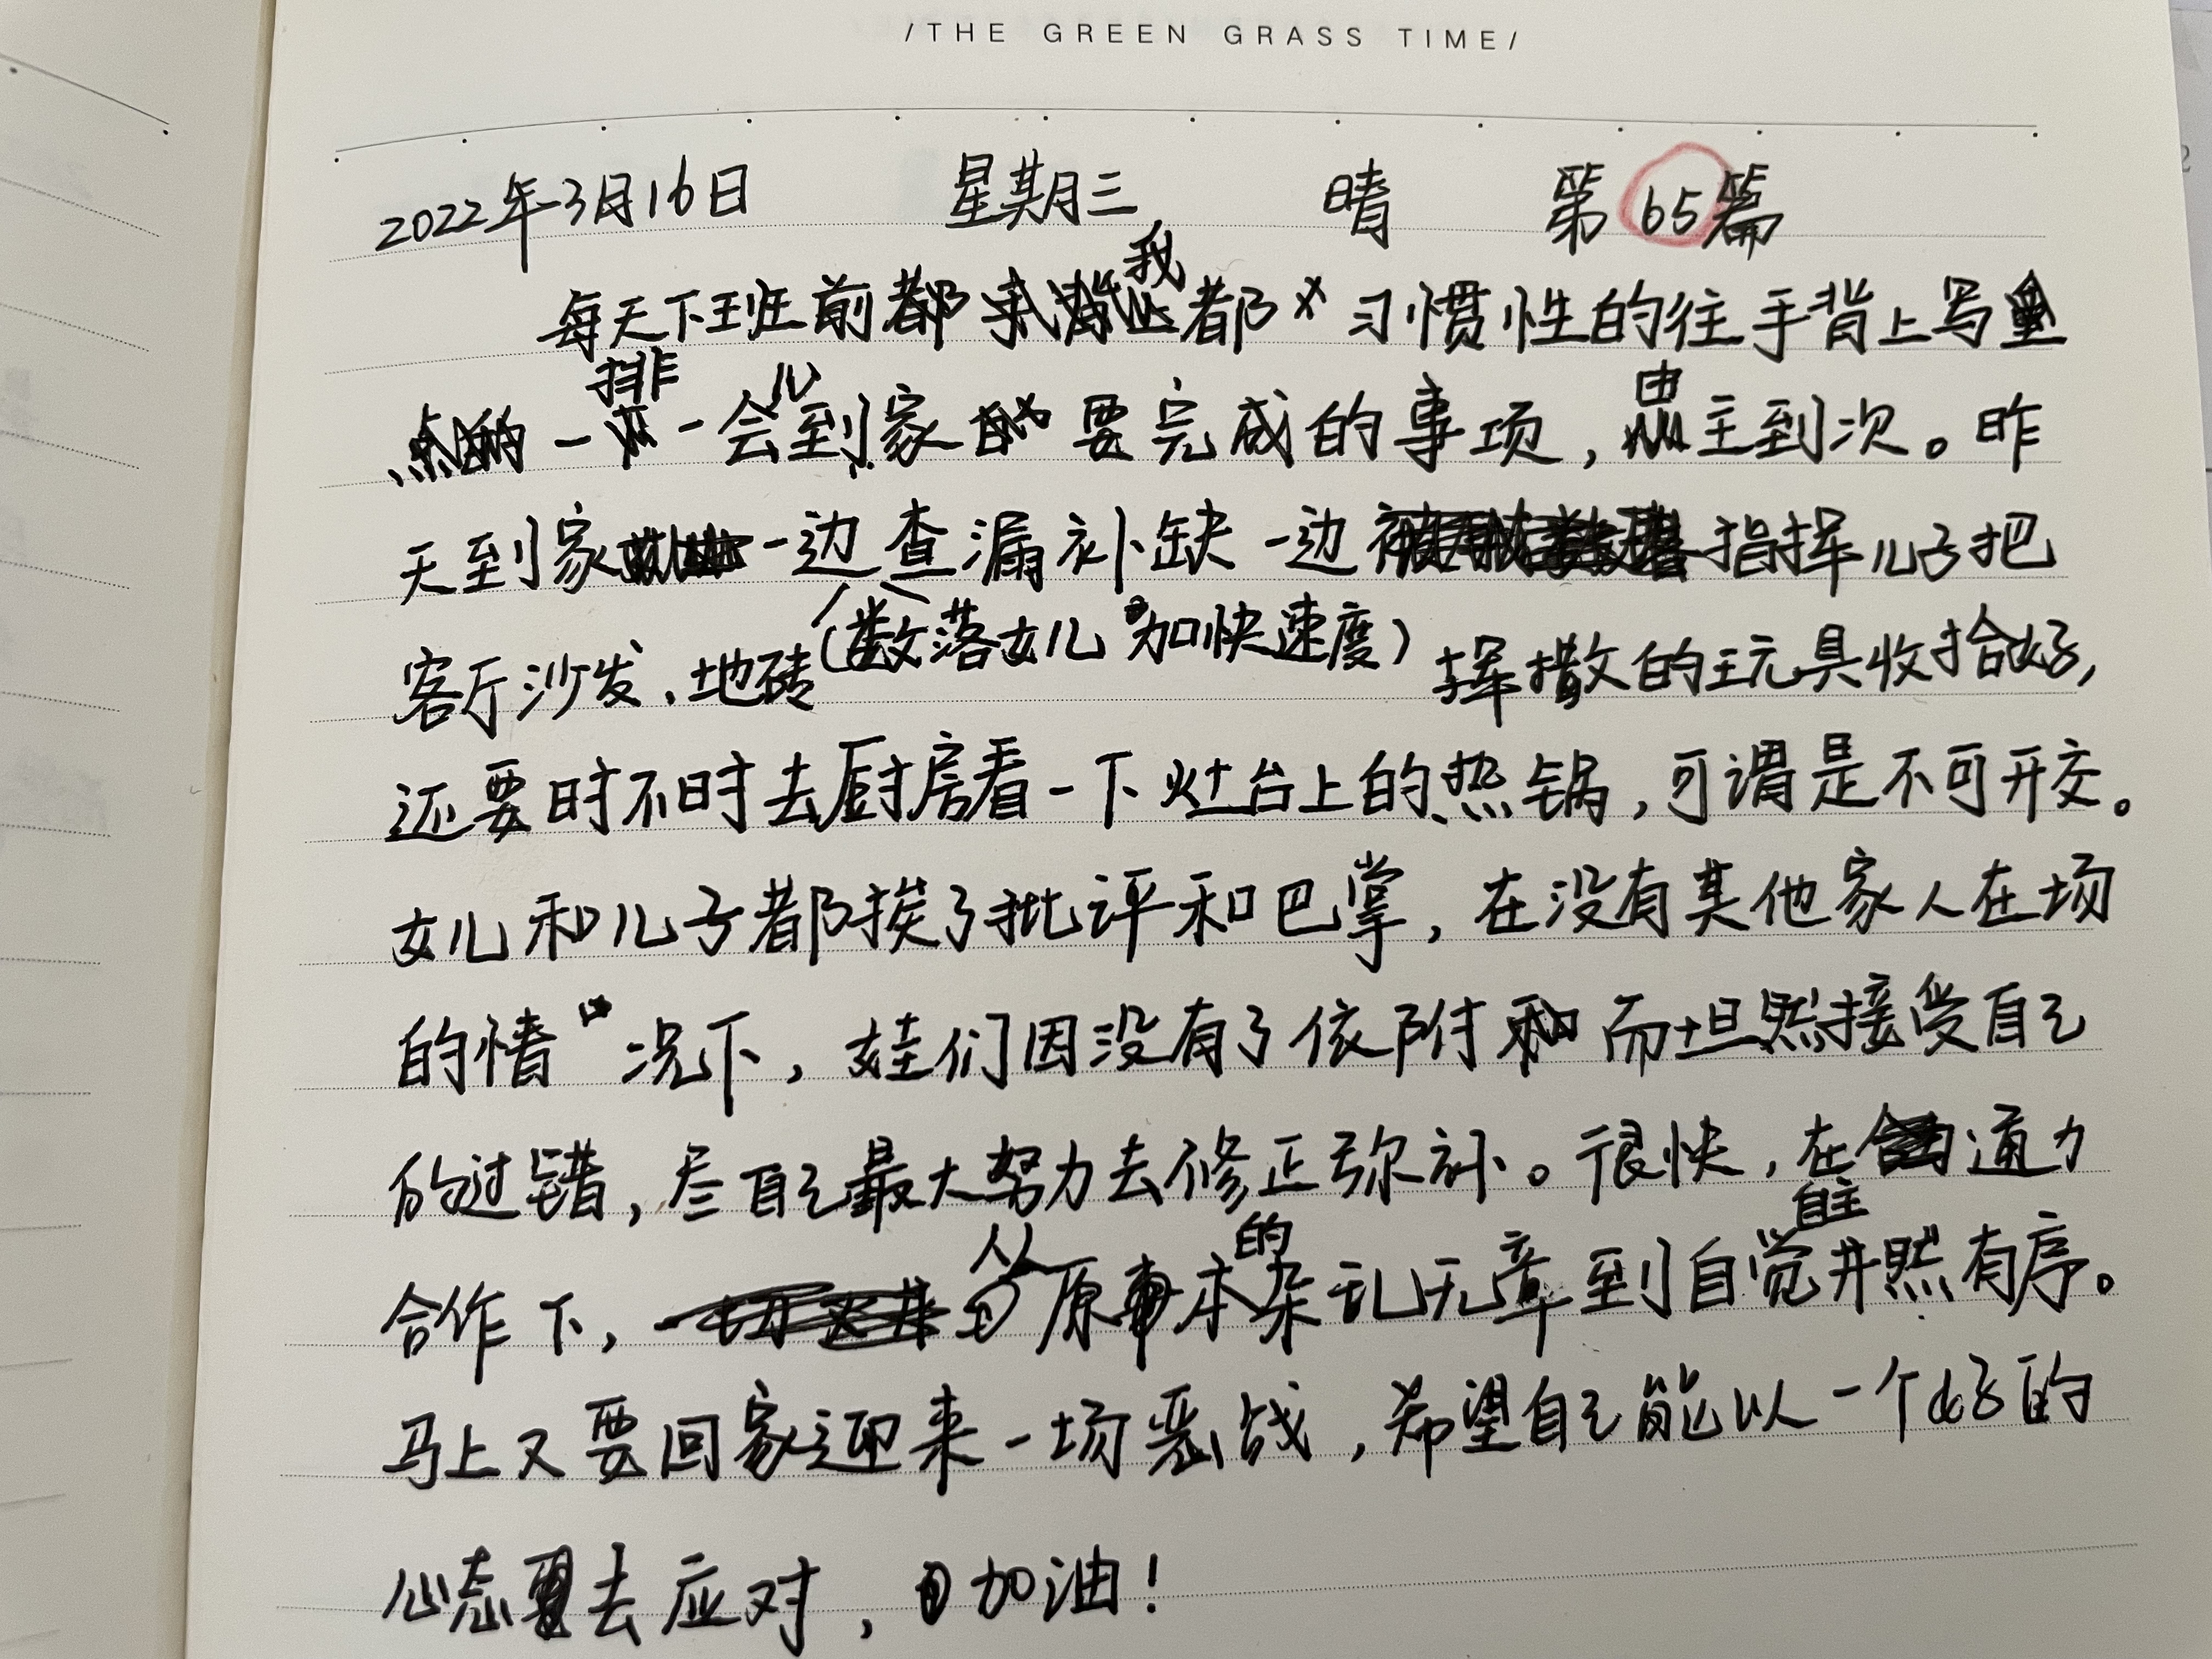 /THE GREEN GRASS TIME/
2022年3月16日 星期三 晴 第65篇
每天下班前都我都习惯性的往手背上写
一排一会儿到家要完成的事项，由主到次。昨
天到家一边查漏补缺一边指挥儿子把
客厅沙发、地砖(数落女儿加快速度)挥撒的玩具收拾好，
还要时不时去厨房看一下灶台上的热锅，可谓是不可开交。
女儿和儿子都挨了批评和巴掌，在没有其他家人在场
的情况下，娃们因没有了依附而坦然接受自己
的过错，尽自己最大努力去修正弥补。很快，在通力
合作下，从原本的杂乱无章到自觉自主井然有序。
马上又要回家迎来一场恶战，希望自己能以一个好的
心态去应对，加油！